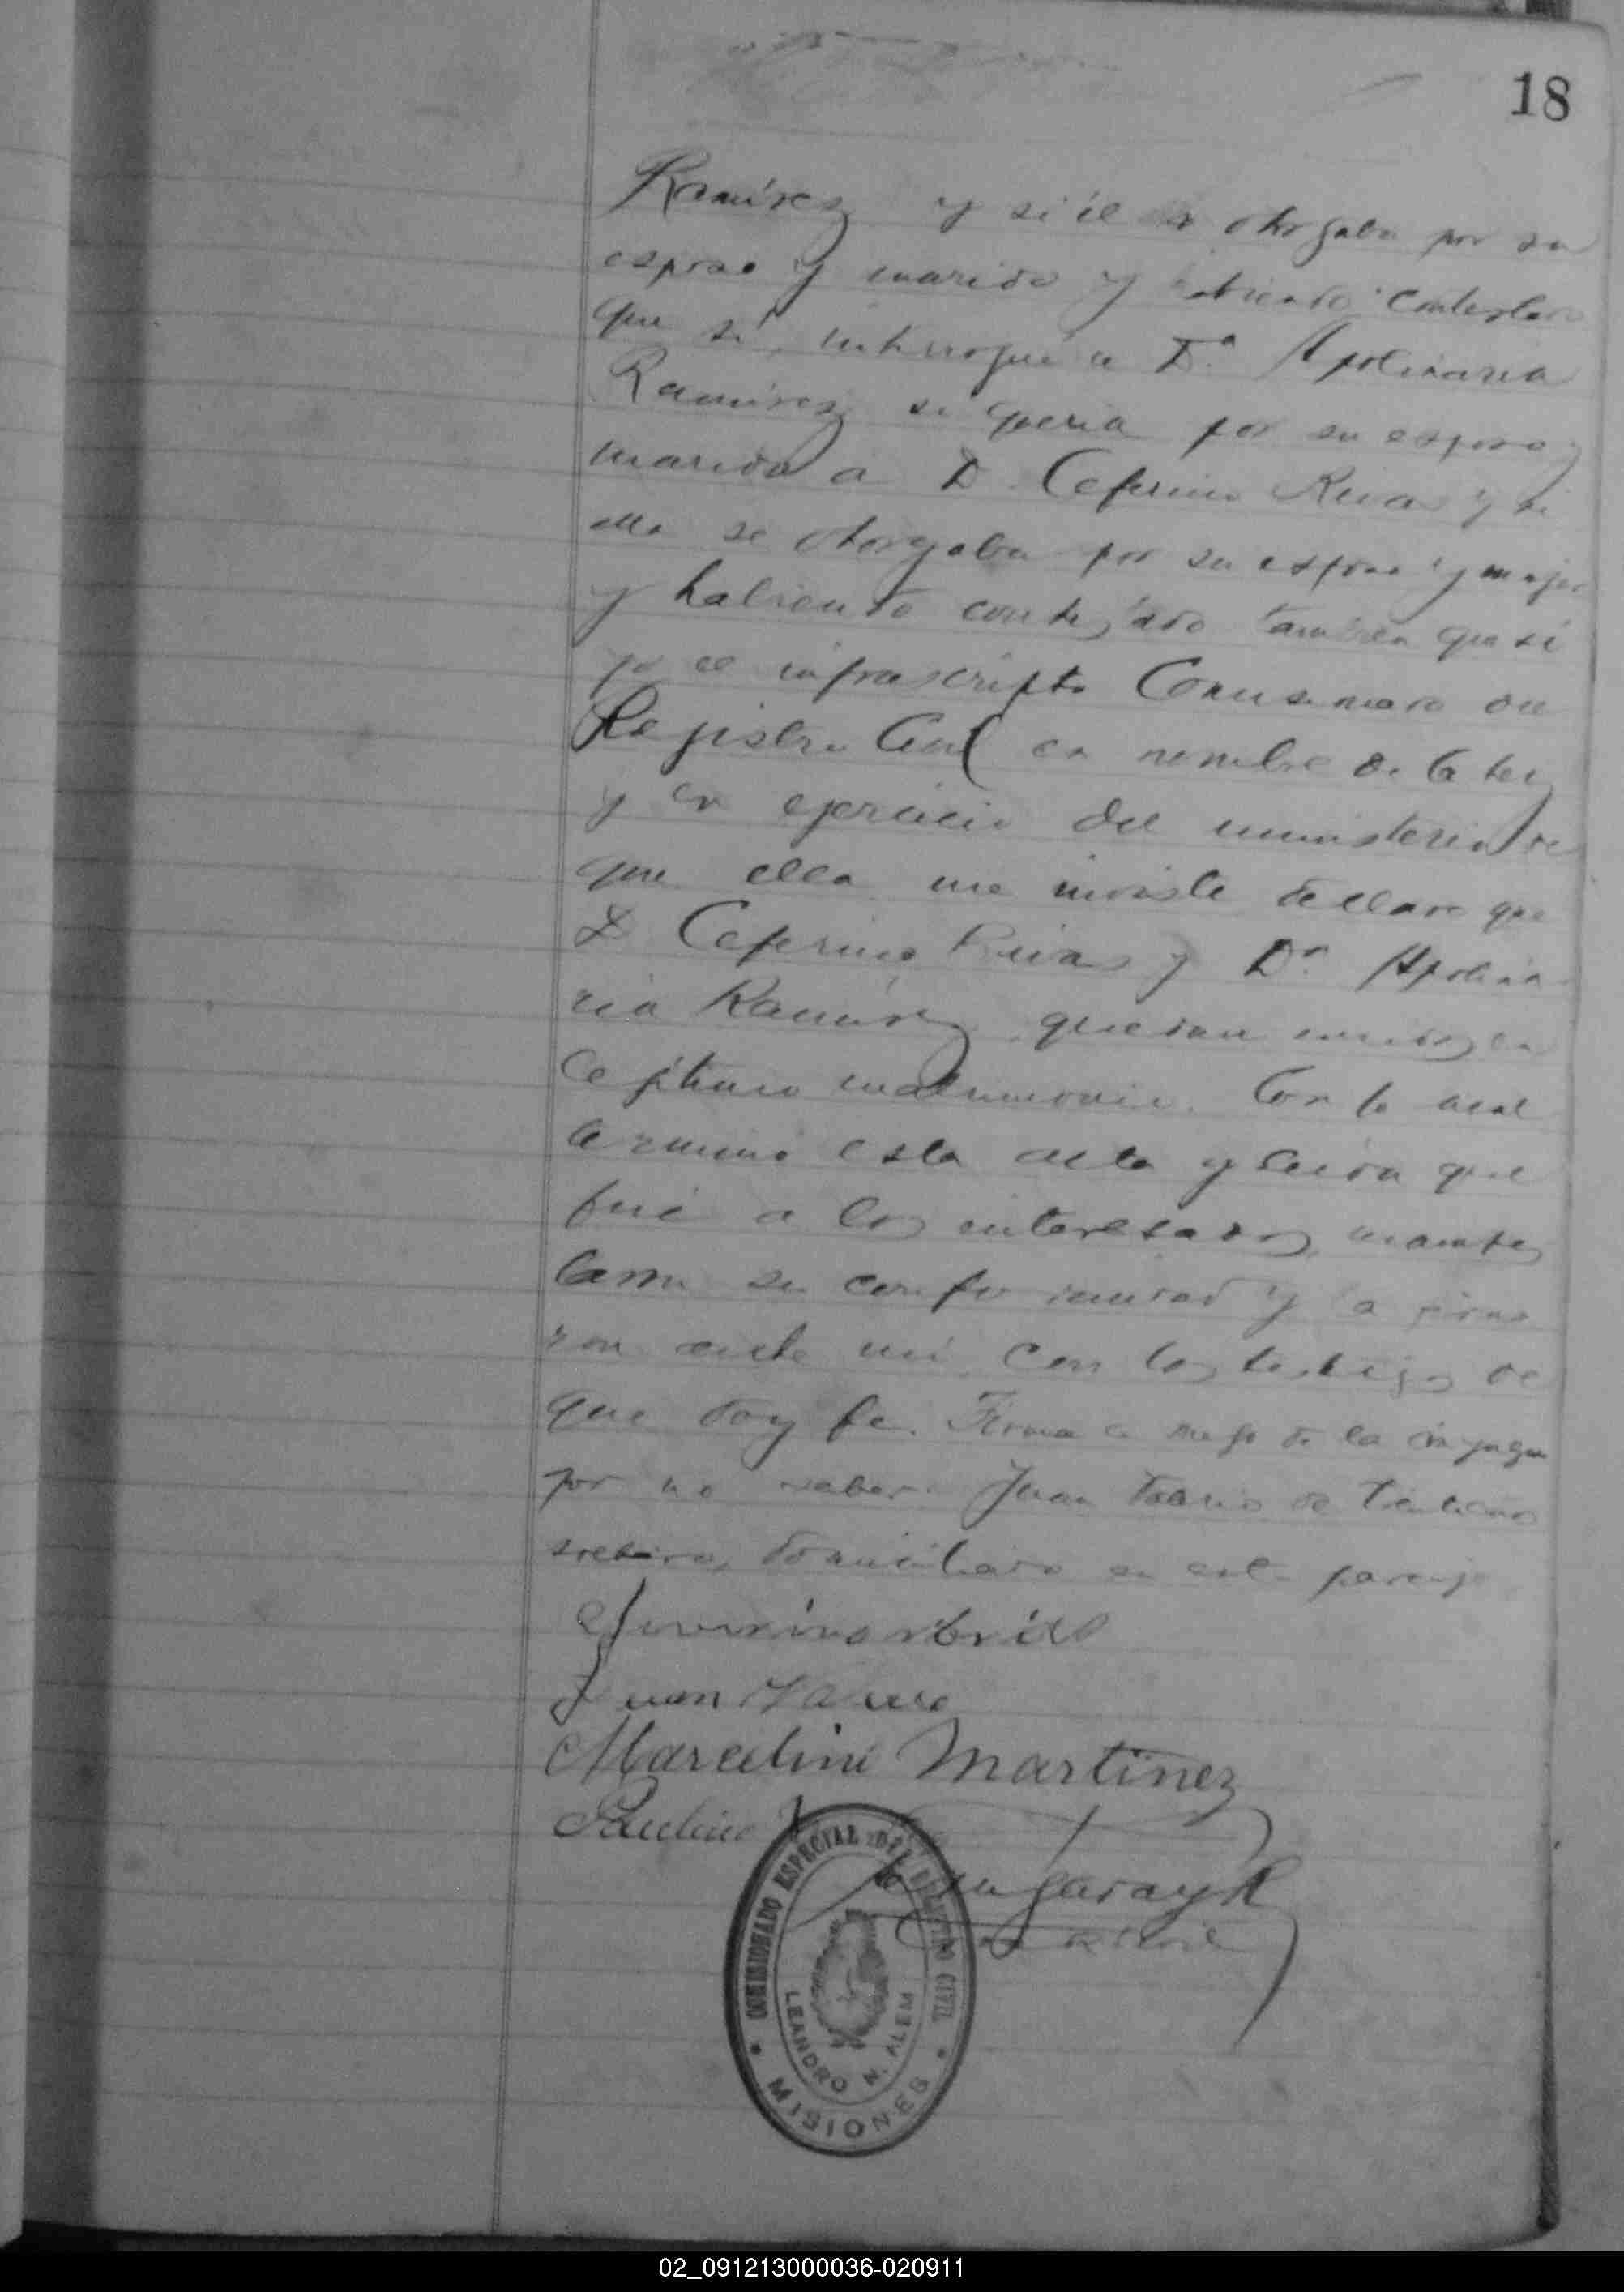 18
Ramírez y si él se otorgaba por su
esposo y marido y habiendo contestado
que sí, interrogué a Dª. Apolinaria
Ramírez si quería por su esposo y
marido a D. Ceferino Rivas y si
ella se otorgaba por su esposa y mujer
y habiendo contestado también que sí
yo el infrascripto Comisionado del
Registro Civil en nombre de la ley
y en ejercicio del ministerio de
que ella me inviste declaro que
D Ceferino Rivas y Dª. Apolina
ria Ramírez quedan unidos en
legítimo matrimonio. Con lo cual
terminó esta acta y leida que
fué a los interesados, manifes
taron su conformidad y la firma
ron ante mí con los testigos de
que doy fe. Firma a ruego de la
por no saber Juan de
soltero, domiciliado en este paraje
Juan
Marcelino Martinez
Paulino
Garay
COMISIONADO ESPECIAL DEL REGISTRO CIVIL
LEANDRO N. ALEM
* MISIONES *
02_091213000036-020911